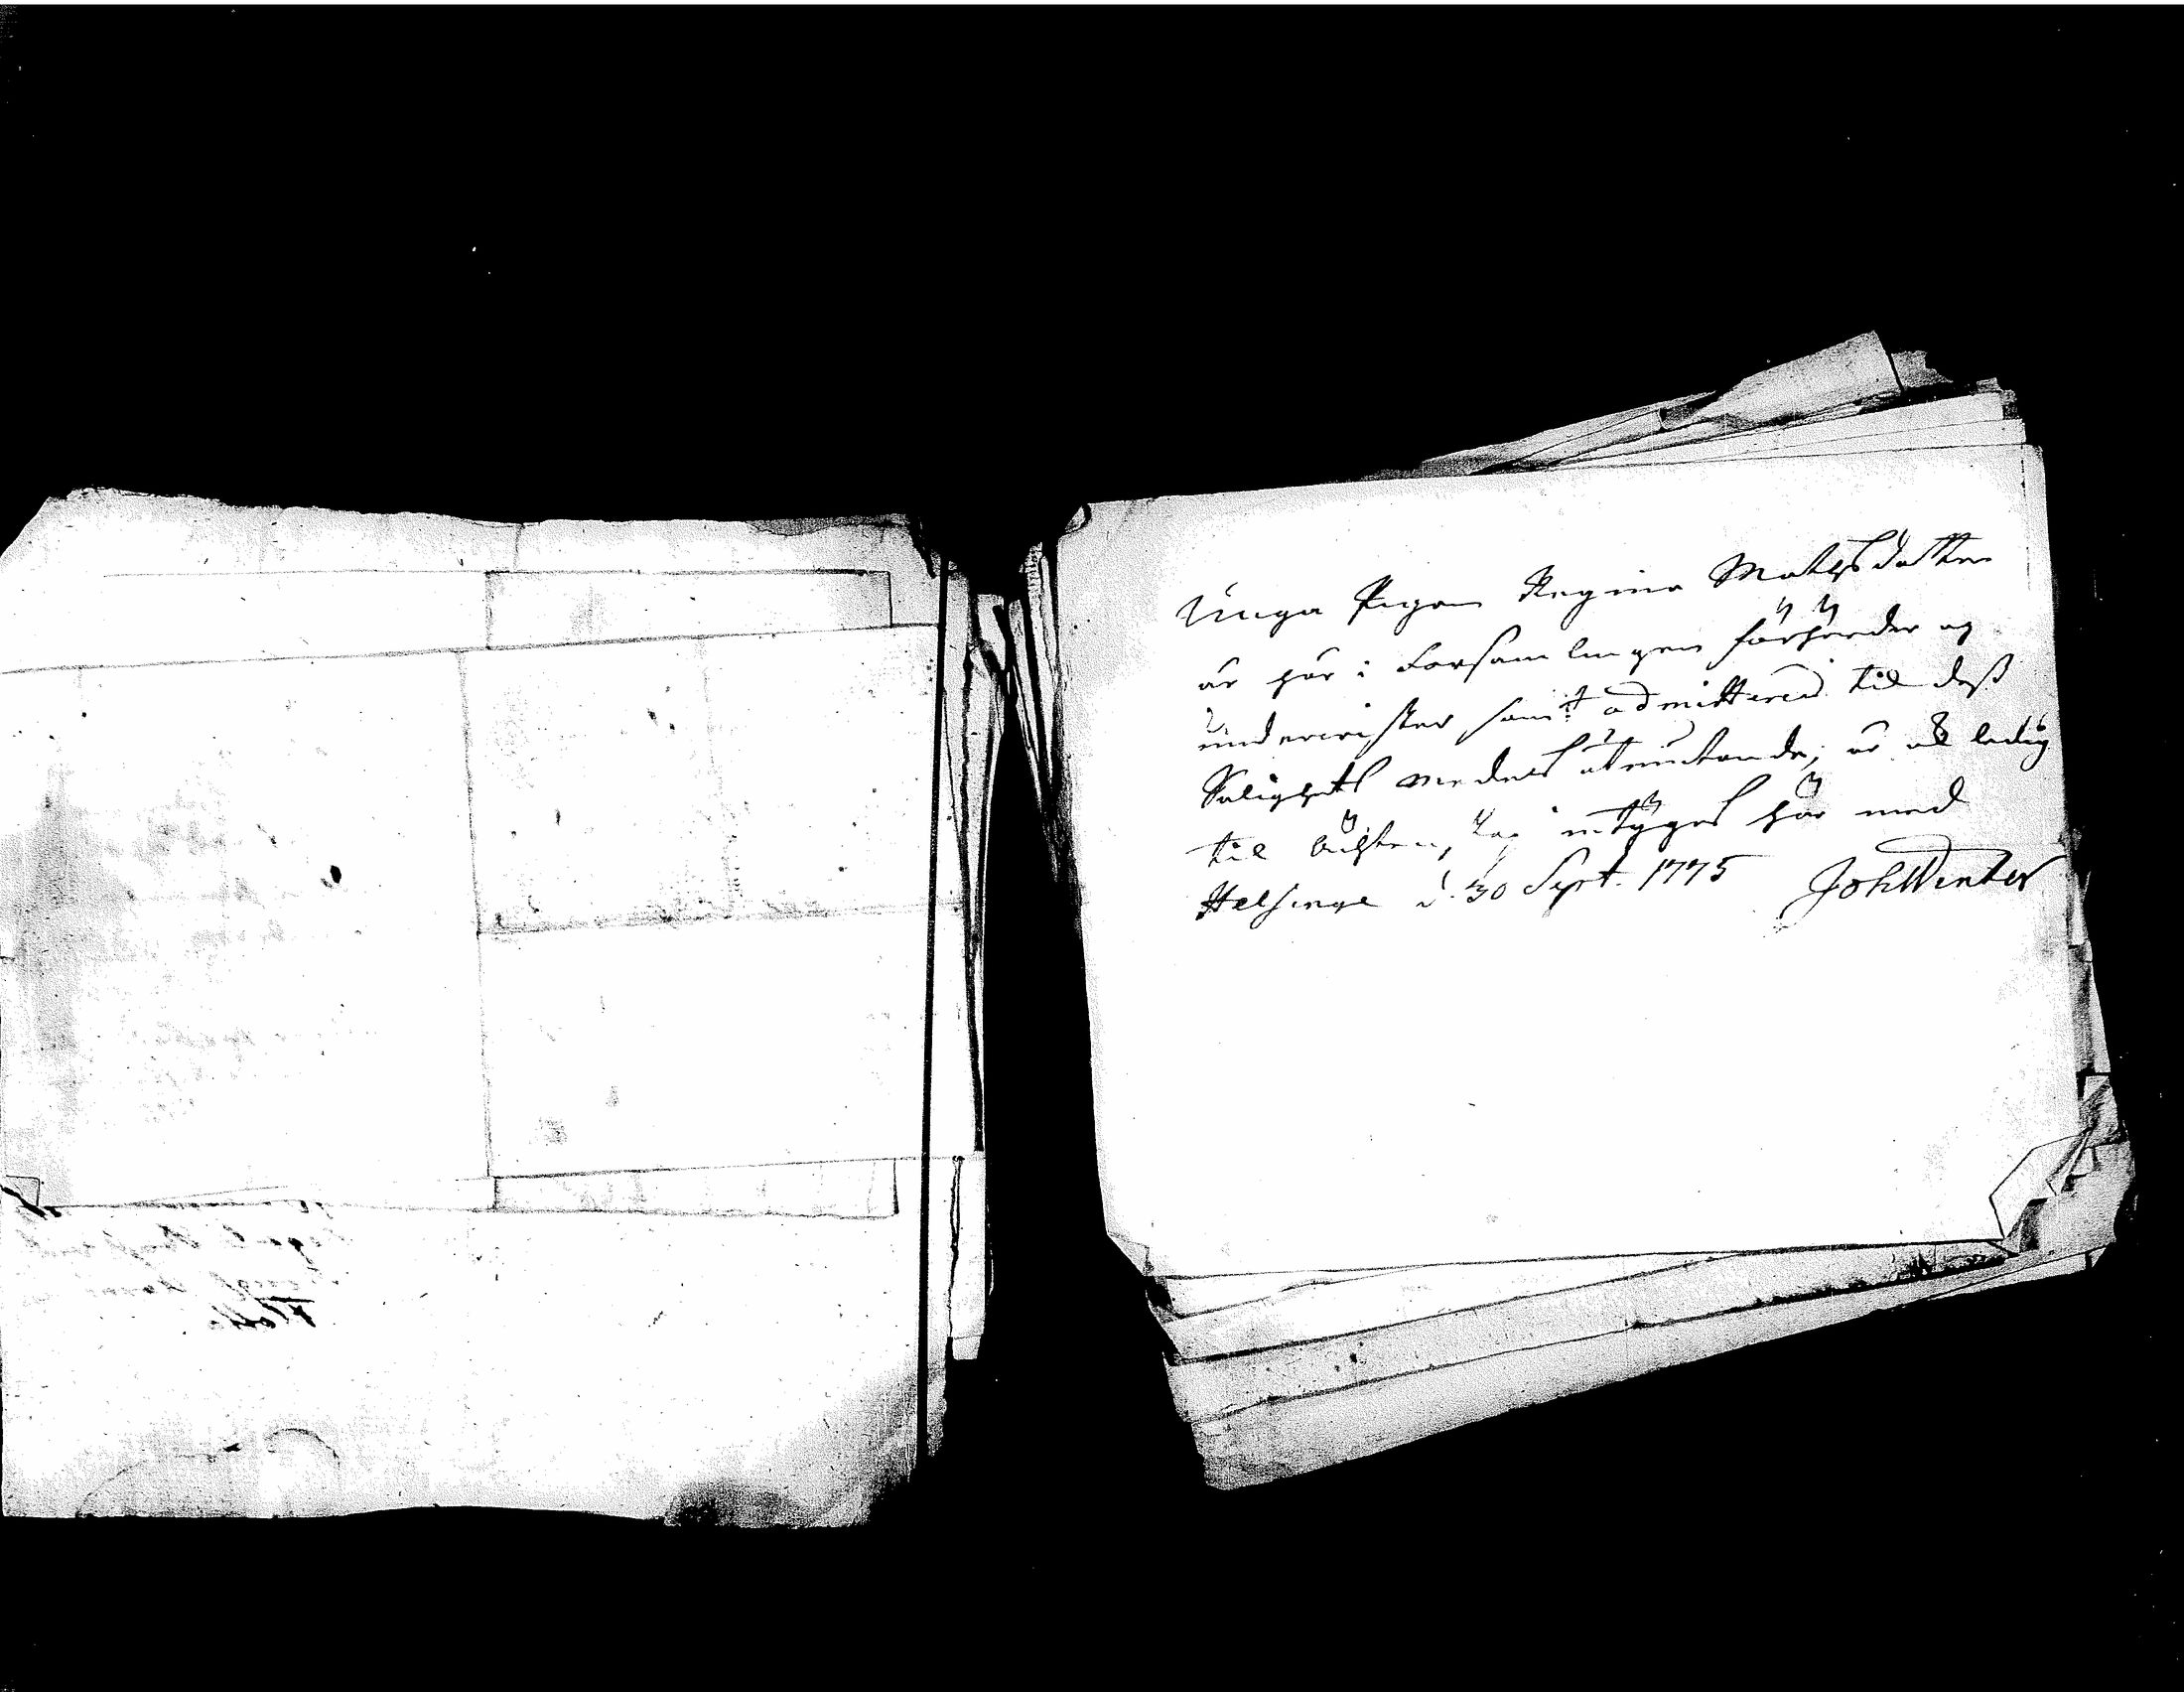 Unga Pigan Regina Matsdotter
är här i Församlingen förhörder og
underwister samt admitterad til dess
Salighets medels åtniutande; är ok ledig
til ächten, intyges här med
Helsinge d. 30 Sept. 1775 JohWinter